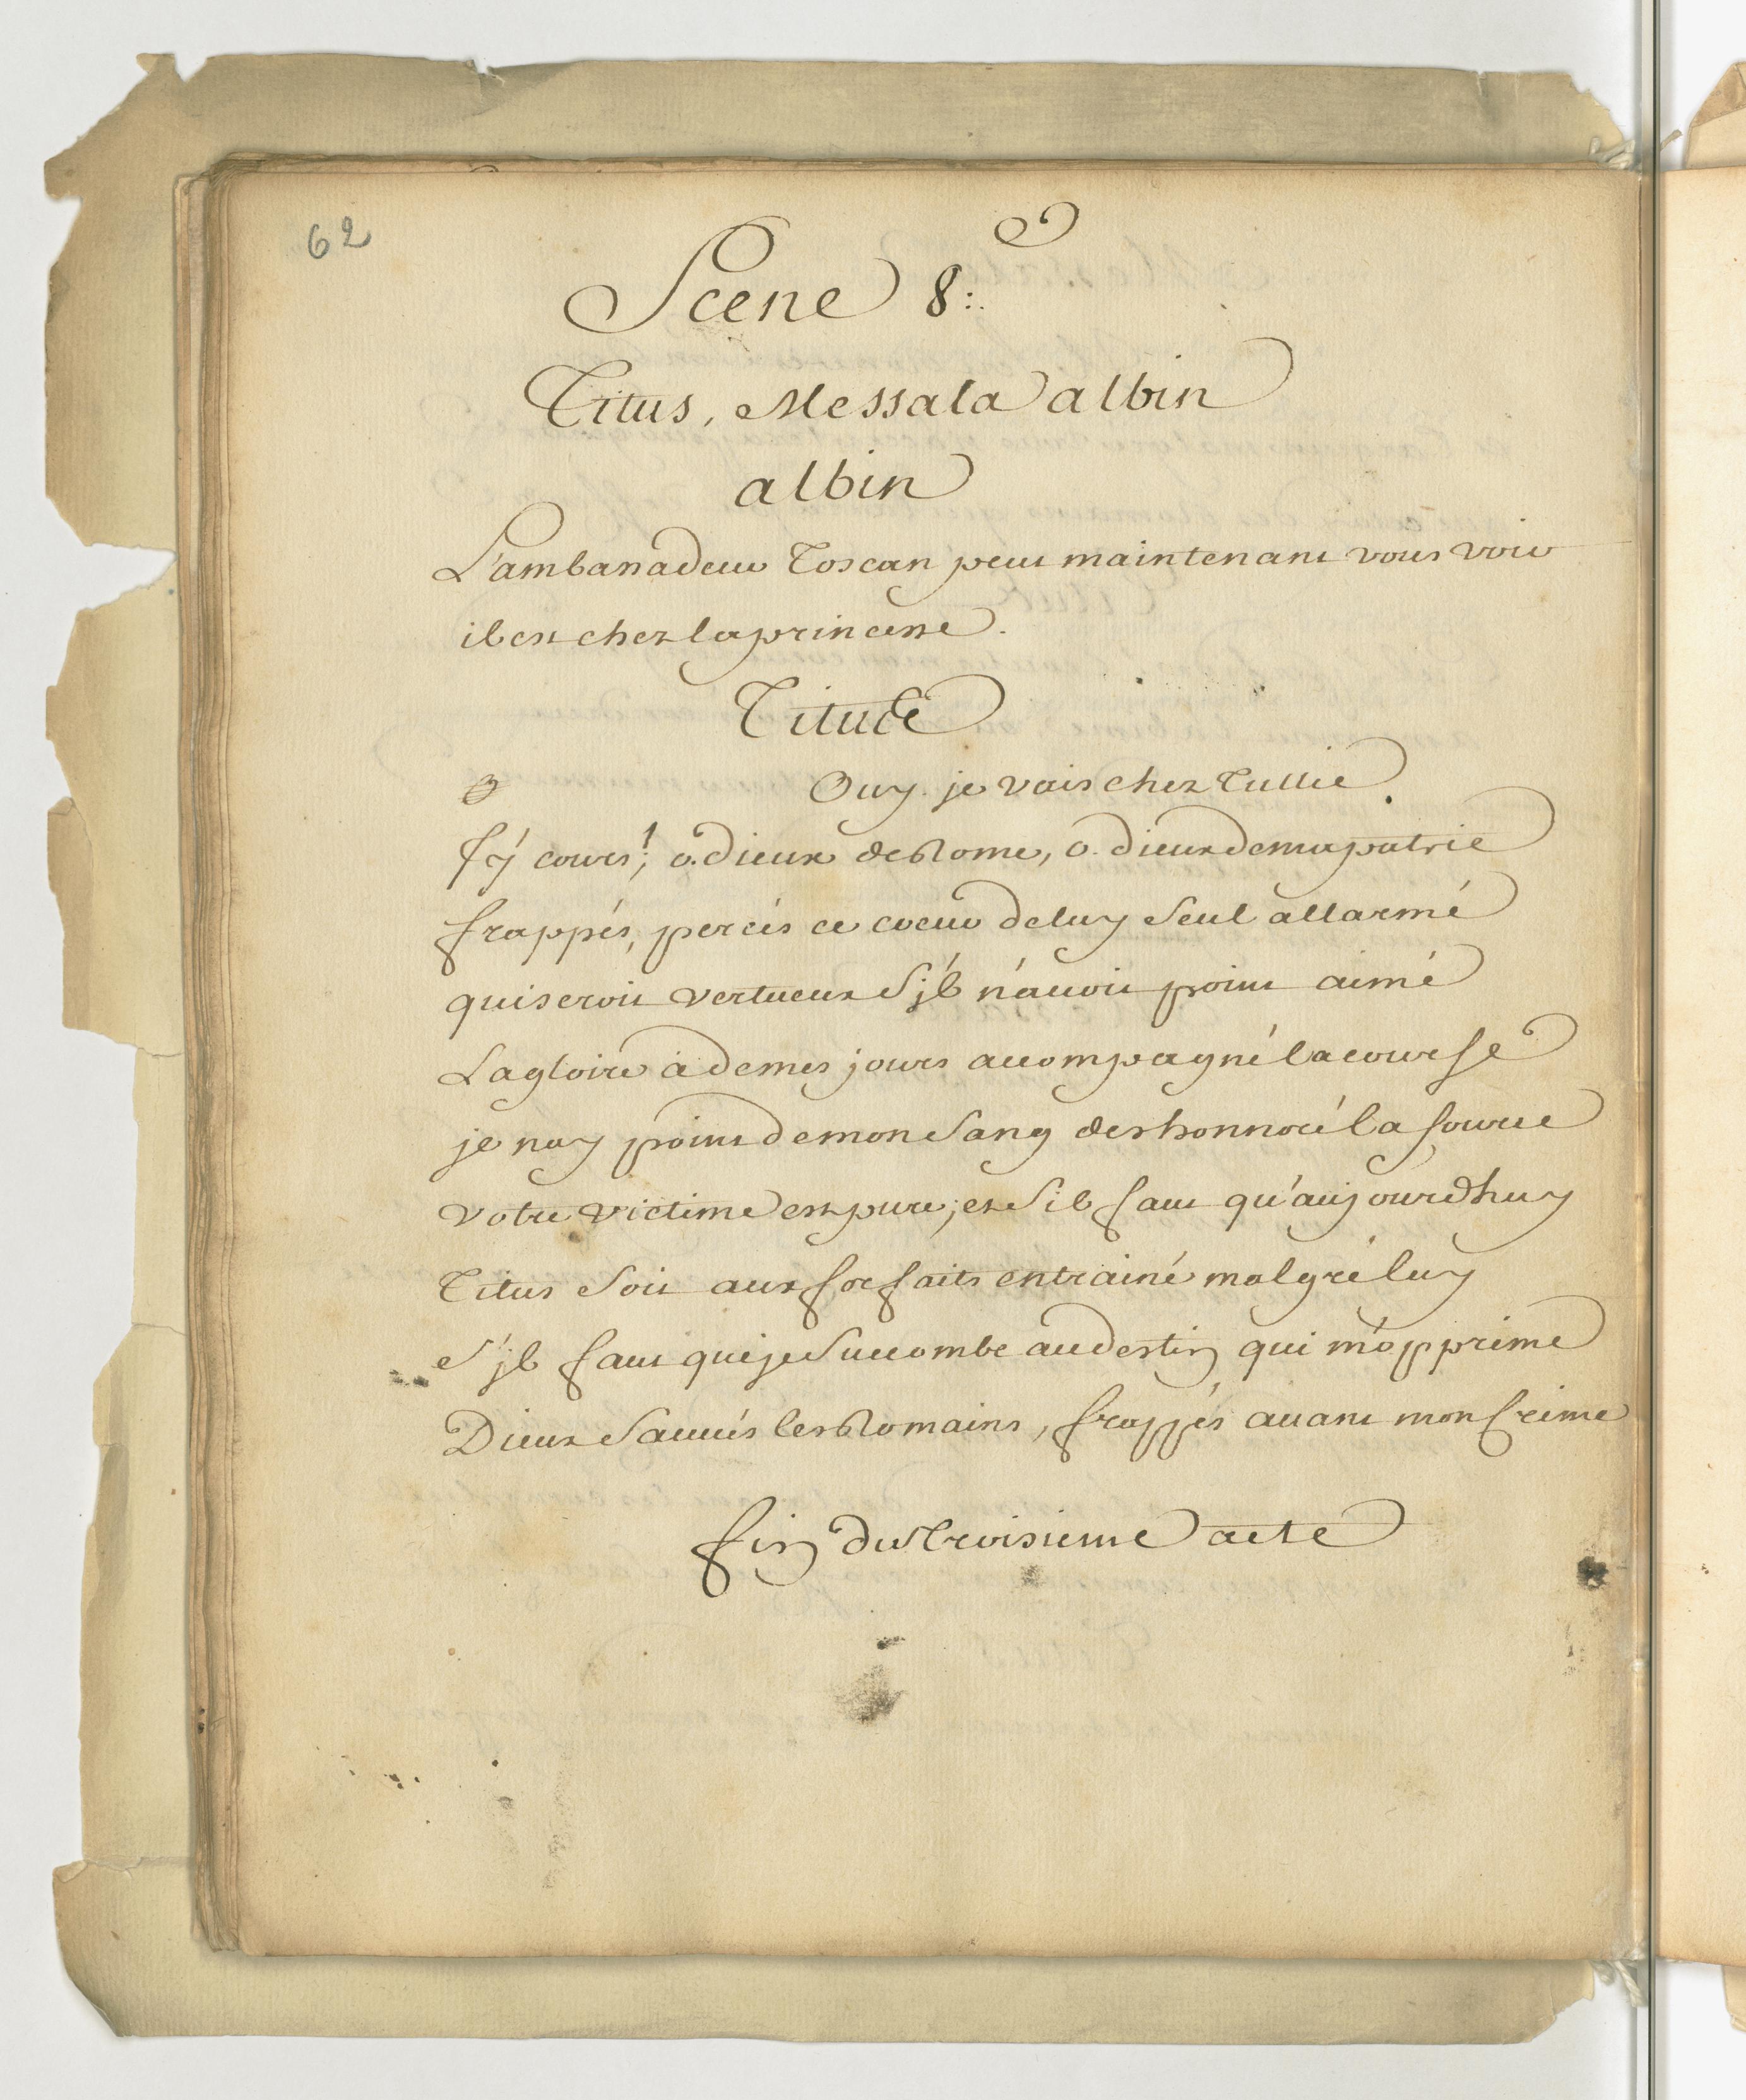 62
Scene 8e:
Titus, Messala albin
albin
L'ambassadeur Toscan peut maintenant vous voir
il est chez la princesse.
Titus
Ouy. je vais chez Tullie.
J'y cours! o. dieux de Rome, o. dieux de ma patrie
frappés, percés ce coeur de luy Seul allarmé
qui seroit vertueux S'jl n'auoit point aimé
La gloire à de mes jours accompagné la course
je nay point de mon Sang deshonnoré la source
votre victime est pure; et S'il faut qu'aujourdhuy
Titus Soit aux forfaits entrainé malgré luy
S'jl faut que je Succombe au destin qui m'opprime
Dieux Sauués les Romains, frappés auant mon Crime
fin du troisieme acte